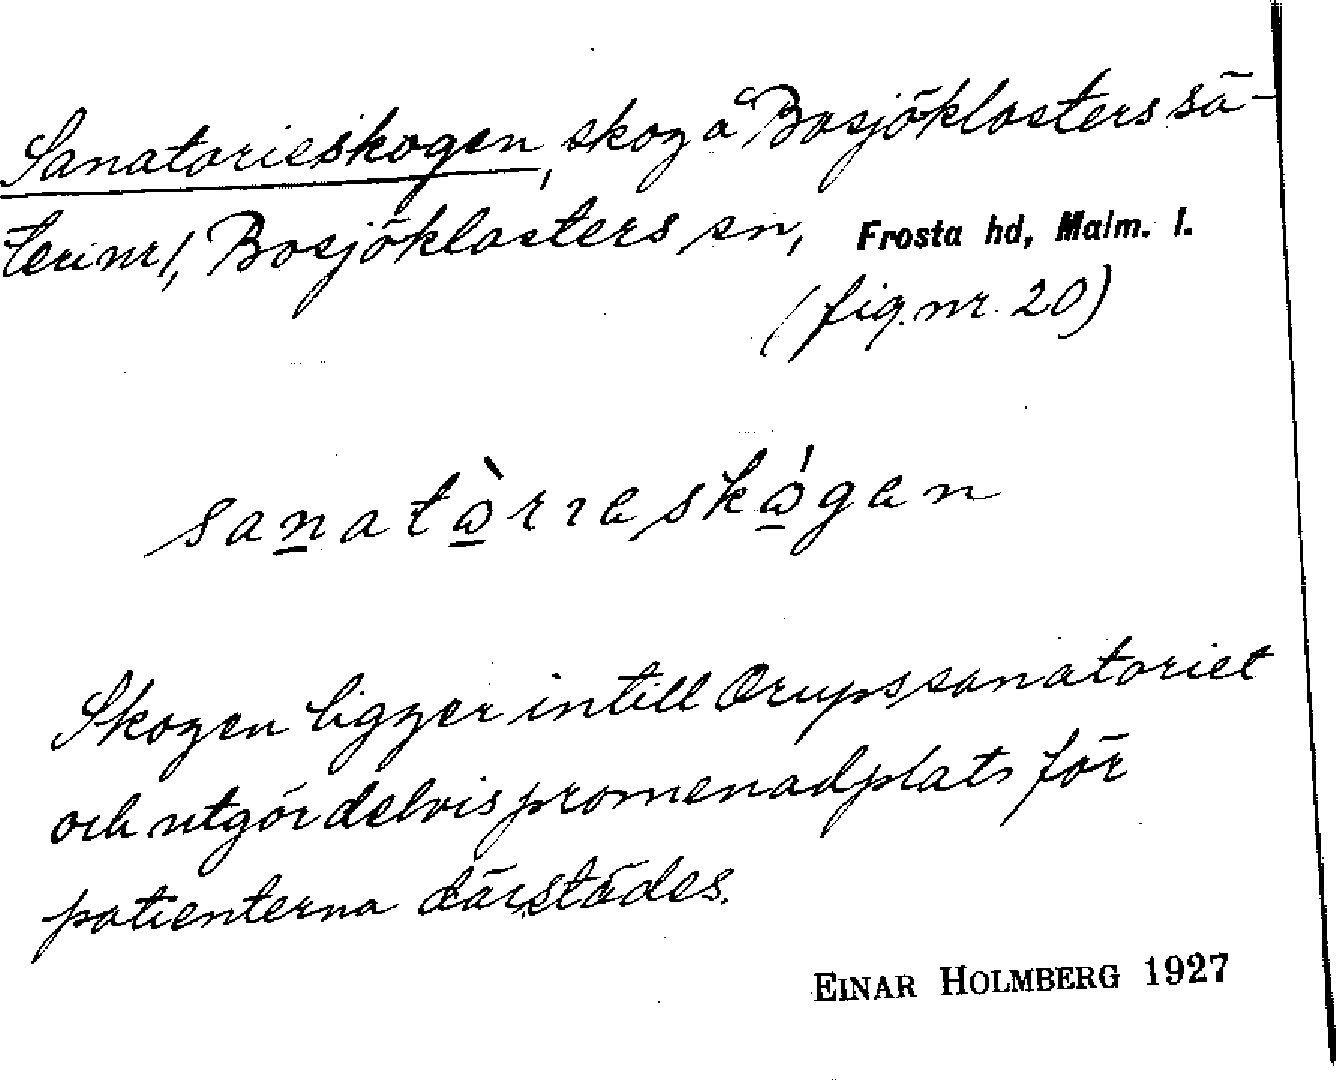 Sanatorieskogen, skog å Bosjöklosters sä-
teri nr 1, Bosjöklosters sn, Frosta hd, Malm. l.
(fig. nr. 20)
sanatòrieskógen
Skogen ligger intill Orupssanatoriet
och utgör delvis promenadplats för
patienterna därstädes.
EINAR HOLMBERG 1927